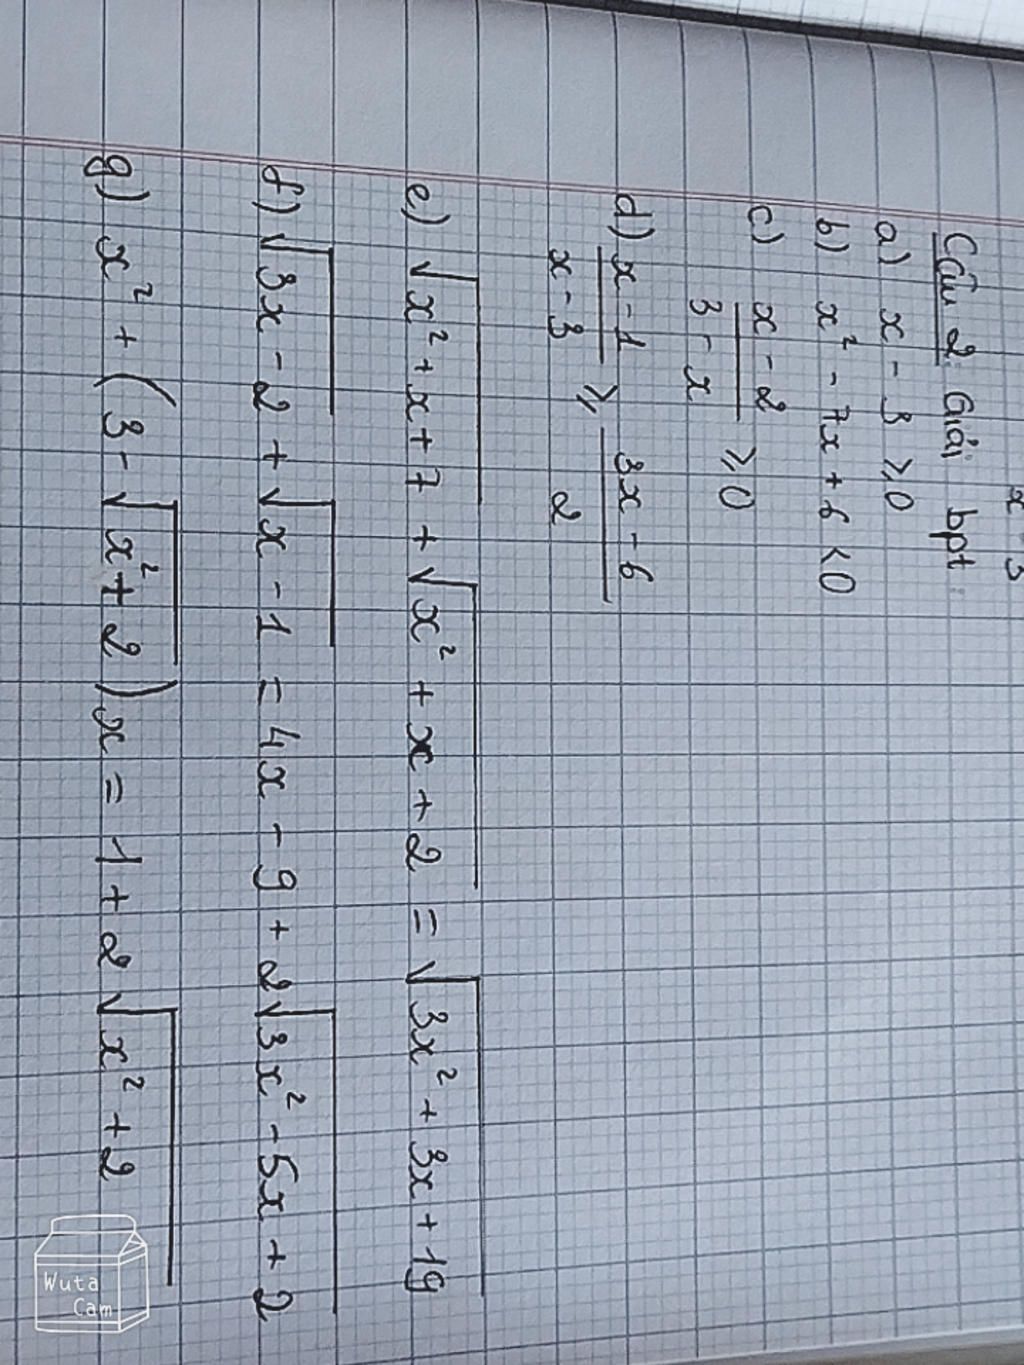 x 3
Câu 2: Giải bpt:
a) x - 3 ⩾ 0
b) x² - 7x + 6 < 0
c) (x - 2)/(3 - x) ⩾ 0
d) (x - 1)/(x - 3) ⩾ (3x - 6)/2
e) √(x² + x + 7) + √(x² + x + 2) = √(3x² + 3x + 19)
f) √(3x - 2) + √(x - 1) = 4x - 9 + 2√(3x² - 5x + 2)
g) x² + (3 - √(x² + 2))x = 1 + 2√(x² + 2)
Wuta
Cam